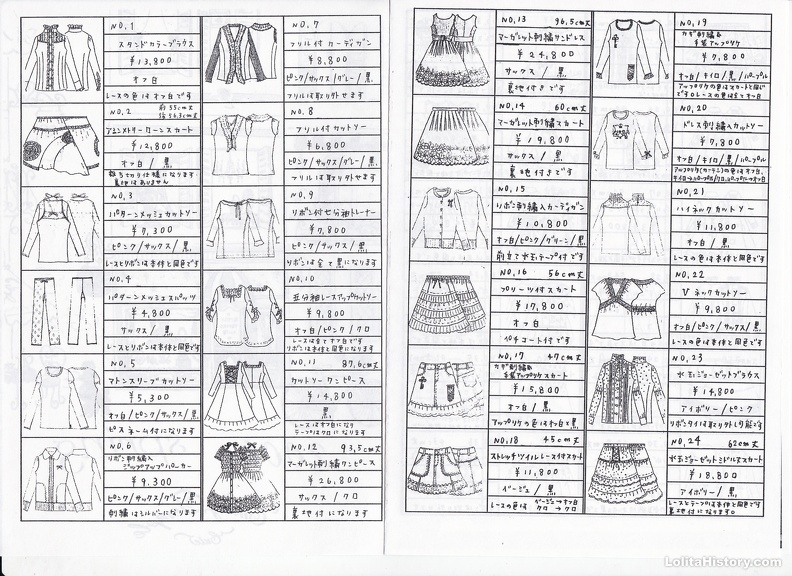 NO.1
スタンドカラーブラウス
¥13,800
オフ白
レースの色はオフ白です
NO.2 前55cm丈
後56.3cm丈
アシンメトリーターンスカート
¥12,800
オフ白/黒
裏地はありません
NO.3
パターンメッシュカットソー
¥7,300
ピンク/サックス/黒
レースとリボンは本体と同色です
NO.4
パターンメッシュスパッツ
¥4,800
サックス/黒
レースとリボンは本体と同色です
NO.5
マトンスリーブカットソー
¥5,300
オフ白/ピンク/サックス/黒
ピスネーム付になります
NO.6
リボン刺繍入
ジップアップパーカー
¥9,300
ピンク/サックス/グレー/黒
刺繍はシルバーになります
NO.7
フリル付カーデガン
¥8,800
ピンク/サックス/グレー/黒
フリルは取り外せます
NO.8
フリル付カットソー
¥6,800
ピンク/サックス/グレー/黒
フリルは取り外せます
NO.9
リボン付七分袖トレーナー
¥7,800
ピンク/サックス/黒
リボンは全て黒になります
NO.10
五分袖レースアップカットソー
¥9,800
オフ白/ピンク/クロ
レースは全てオフ白です
リボンは本体と同色です
NO.11 87.6cm丈
カットソーワンピース
¥14,800
黒
レースはオフ白になり
テープはクロになります
NO.12 93.5cm丈
マーガレット刺繍ワンピース
¥26,800
サックス/クロ
裏地付になります
NO.13 96.5cm丈
マーガレット刺繍サンドレス
¥24,800
サックス/黒
裏地付きです
NO.14 60cm丈
マーガレット刺繍スカート
¥19,800
サックス/黒
裏地付きです
NO.15
リボン刺繍入カーデガン
¥10,800
オフ白/ピンク/グリーン/黒
前立て水玉テープ付です
NO.16 56cm丈
プリーツ付スカート
¥17,800
オフ白
NO.17 47cm丈
カギ刺繍&
手袋アップリケスカート
¥15,800
オフ白/黒
アップリケの色はオフ白と黒
NO.18 45cm丈
ストレッチツイルレース付スカート
¥11,800
ベージュ/黒
レースの色は ベージュ→オフ白
クロ→クロ
NO.19
カギ刺繍&
手袋アップリケ
¥7,800
オフ白/キイロ/黒/パープル
NO.20
ドレス刺繍入カットソー
¥7,800
オフ白/キイロ/黒/パープル
NO.21
ハイネックカットソー
¥11,800
オフ白/黒
レースの色は本体と同色です
NO.22
Vネックカットソー
¥9,800
オフ白/ピンク/サックス/黒
レースの色は本体と同色です
NO.23
水玉ジョーゼットブラウス
¥14,800
アイボリー/ピンク
リボンタイは取り外し可能です
NO.24 62cm丈
水玉ジョーゼットミドル丈スカート
¥18,800
アイボリー/黒
レースとテープは本体と同色です
裏地付になります。
LolitaHistory.com